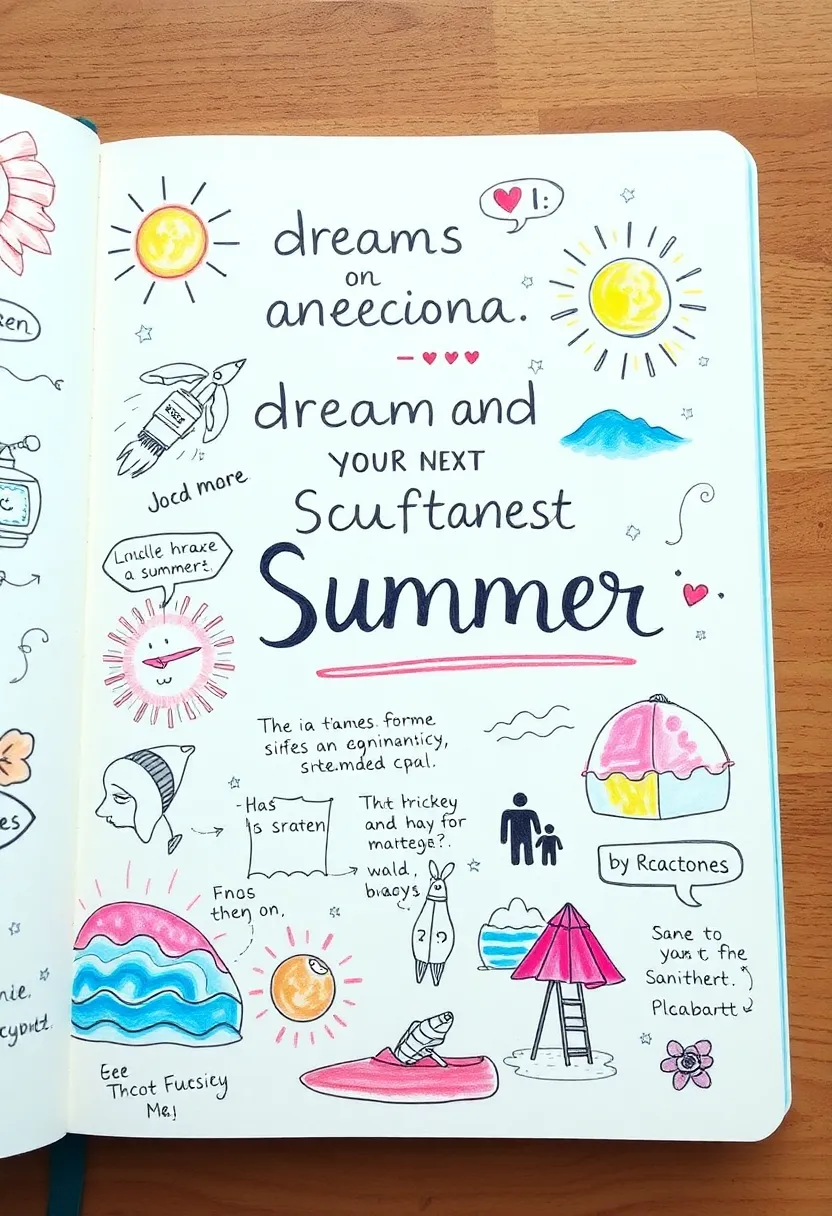 dreams
on
aneeciona.
dream and
YOUR NEXT
Scuftanest
Summer
Jocd more
a summert.
The ia tames. forme
sifes an egninanticy,
srte.mded cpal.
-Has
is sraten
Tht hrickey
and hay for
martege?.
wald,
biaoys
Fnos
then on,
by Rcactones
Sane to
yas t fhe
Sanithert.
Plcabartt
Eee
Thcot Fucsicy
Me!
en
es
nie.
cyortt.